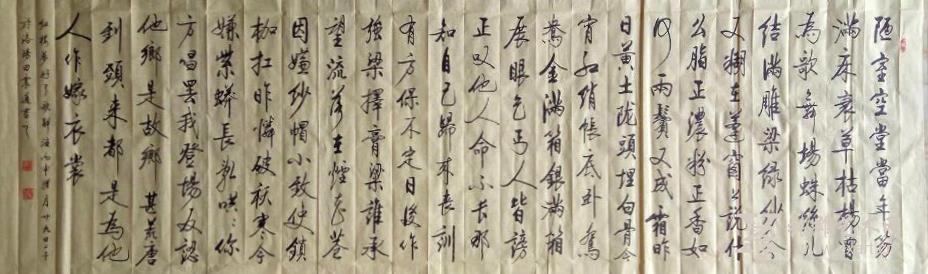 陋室空堂當年笏
滿床衰草枯楊曾
為歌舞場蛛絲儿
结滿雕梁绿纱今
又糊在蓬窗上說什
么脂正濃粉正香如
何兩鬓又成霜昨
日黄土隴頭埋白骨今
宵红绡帳底卧鸳
鴦金滿箱銀滿箱
展眼乞丐人皆謗
正叹他人命不长那
知自己歸来丧訓
有方保不定日後作
强梁擇膏粱誰承
望流落在煙花巷
因嫌纱帽小致使鎖
枷扛昨憐破袄寒今
嫌紫蟒長亂哄哄你
方唱罢我登場反認
他鄉是故鄉甚荒唐
到頭来都是為他
人作嫁衣裳
红楼夢好了歌解
於洛陽